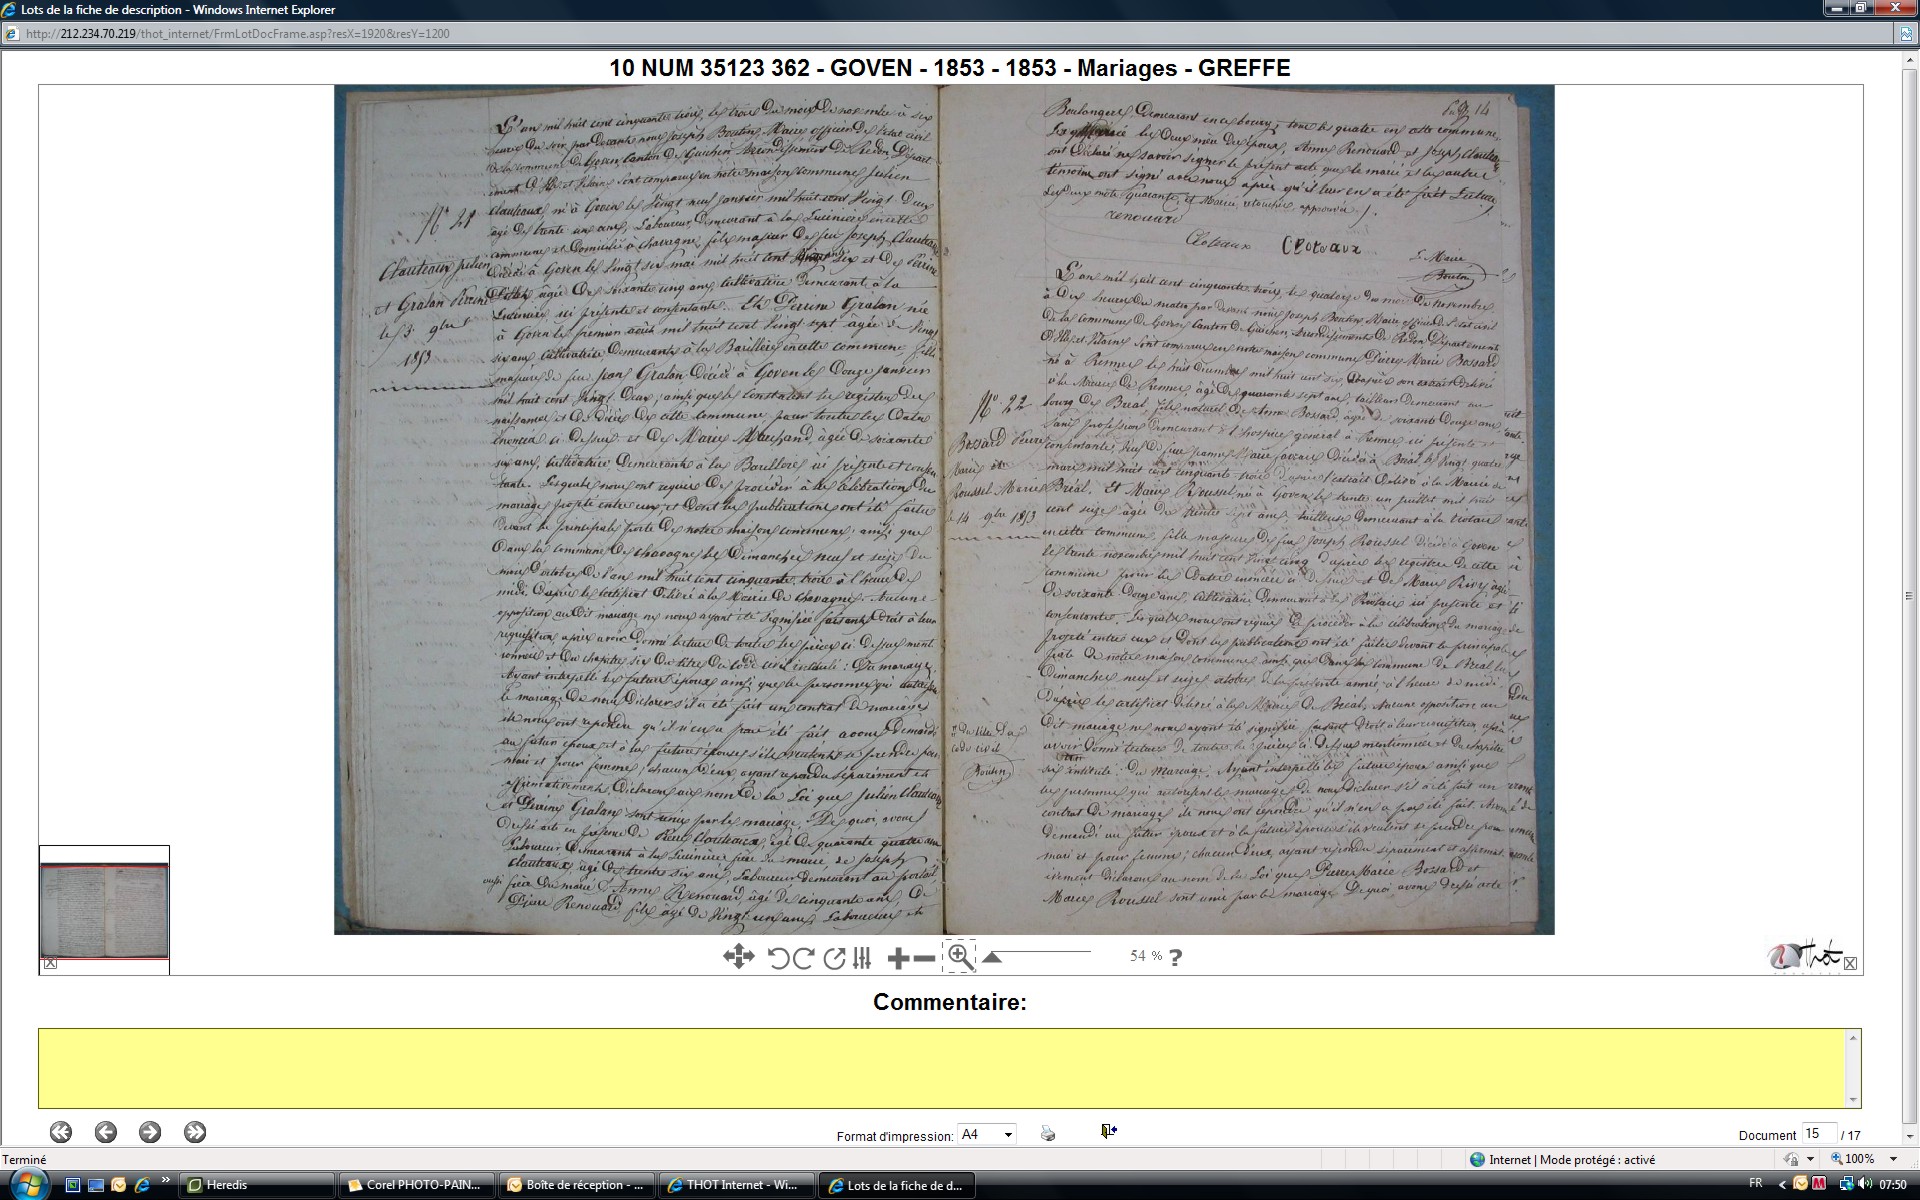 Lots de la fiche de description - Windows Internet Explorer
http://212.234.70.219/thot_internet/FrmLotDocFrame.asp?resX=1920&resY=1200
10 NUM 35123 362 - GOVEN - 1853 - 1853 - Mariages - GREFFE
L'an mil huit cent cinquante trois, le trois du mois de novembre à six
heures du soir, par devant nous Joseph Boutin, Maire officier de l'état civil
de la commune de Goven Canton de Guichen arrondissement de Redon Départ
ement d'Ille et Vilaine sont comparus en notre maison commune Julien
Clauteaux né à Goven le vingt neuf janvier mil huit cent vingt Deux
âgé de trente un ans, Laboureur, demeurant à la
commune et Domicilié à Chavagne, fils majeur de feu Joseph Clauteaux
Décédé à Goven le vingt six mai mil huit cent six et de Perrine
âgée de soixante cinq ans cultivatrice demeurant à la
ici présente et consentante. Et Perrine Gralan née
à Goven le premier août mil huit cent vingt sept âgée de vingt
six ans cultivatrice Demeurante à la Barillère en cette commune, fille
majeure de feu Jean Gralan Décédé à Goven le Douze janvier
mil huit cent vingt Deux, ainsi que le constatent les registres de
naissances et de Décès de cette commune pour toutes les Dates
énoncées ci dessus et de Marie Marchand, âgée de soixante
six ans, cultivatrice Demeurante à la Barillère ici présente et consen
tante. Lesquels nous ont requis de procéder à la célébration du
mariage projeté entre eux et dont les publications ont été faites
devant la principale porte de notre maison commune, ainsi que
dans la commune de Chavagne les Dimanches neuf et seize du
mois d'octobre de l'an mil huit cent cinquante trois à l'heure de
midi, d'après le certificat délivré à la Mairie de Chavagne. Aucune
opposition au dit mariage ne nous ayant été signifiée faisant droit à leur
réquisition, après avoir donné lecture de toutes les pièces ci dessus ment
ionnées et du chapitre six du titre du code civil intitulé : Du mariage.
Ayant interpellé les futurs époux ainsi que les personnes qui autorisent
le mariage de nous déclarer s'il a été fait un contrat de mariage
ils nous ont répondu qu'il n'en a pas été fait avons Demandé
au futur époux et à la future épouse s'ils veulent se prendre pour
mari et pour femme ; chacun d'eux ayant répondu séparément et
affirmativement, Déclarons au nom de la Loi que Julien Clauteaux
et Perrine Gralan sont unis par le mariage. De quoi, avons
dressé acte en présence de Pierre Clauteaux, âgé de quarante quatre ans
Laboureur Demeurant à la frère du marié de Joseph
Clauteaux, âgé de trente six ans, Laboureur demeurant au
aussi frère du marié de Anne Renouard, âgé de cinquante ans, de
Pierre Renouard fils âgé de vingt un ans, Laboureur et
N° 21
Clauteaux Julien
et Gralan Perrine
le 3 9bre
1853
14
Boulanger, Demeurant en ce bourg, tous les quatre en cette commune
les Deux mère des époux, Anne Renouard et Joseph Clauteaux
ont Déclaré ne savoir signer le présent acte que le marié et les autres
témoins ont signé avec nous après qu'il leur en a été fait Lecture
Les deux mots quarante et Marié, approuvés.
renouard
Cloteaux Cloteaux
Le Maire
Boutin
L'an mil huit cent cinquante trois, le quatorze du mois de novembre
à dix heures du matin par devant nous Joseph Boutin Maire officier de l'état civil
de la commune de Goven Canton de Guichen, arrondissement de Redon Département
d'Ille et Vilaine sont comparus en notre maison commune Pierre Marie Bossard
né à Rennes le huit Décembre mil huit cent six, d'après son extrait délivré
à la Mairie de Rennes, âgé de quarante sept ans, tailleur Demeurant au
bourg de Bréal, fils naturel de Anne Bossard, âgée de soixante Douze ans
sans profession demeurant à l'hospice général à Rennes ici présente et
consentante, Veuf de feue Jeanne Marie Décédée à Bréal le vingt quatre
mars mil huit cent cinquante trois d'après l'extrait délivré à la Mairie de
Bréal. Et Marie Roussel, née à Goven le trente un juillet mil huit
cent seize âgée de trente sept ans, tailleuse demeurant à la
en cette commune, fille majeure de feu Joseph Roussel Décédé à Goven
le trente novembre mil huit cent vingt cinq d'après les registres de cette
commune pour les Dates énoncées ci dessus et de Marie
de soixante Douze ans, cultivatrice demeurant à la ici présente et
consentante. Lesquels nous ont requis de procéder à la célébration du mariage
projeté entre eux et dont les publications ont été faites devant la principale
porte de notre maison commune ainsi que dans la commune de Bréal les
Dimanches neuf et seize octobre de la présente année, à l'heure de midi
d'après le certificat délivré à la Mairie de Bréal, aucune opposition au
dit mariage ne nous ayant été signifiée faisant droit à leur réquisition, après
avoir donné lecture de toutes les pièces ci dessus mentionnées et du chapitre
six intitulé : du Mariage. Ayant interpellé les futurs époux ainsi que
les personnes qui autorisent le mariage de nous déclarer s'il a été fait un
contrat de mariage ils nous ont répondu qu'il n'en a pas été fait. Avons
demandé au futur époux et à la future épouse s'ils veulent se prendre pour
mari et pour femme ; chacun d'eux, ayant répondu séparément et affirmat
ivement déclarons au nom de la Loi que Pierre Marie Bossard et
Marie Roussel sont unis par le mariage De quoi avons dressé acte
N° 22
Bossard Pierre
Marie et
Roussel Marie
le 14 9bre 1853
du titre du
code civil
Boutin
54 % ?
Thot
Commentaire:
Format d'impression: A4
Document 15 / 17
Terminé
Internet | Mode protégé : activé
100%
Heredis
Corel PHOTO-PAIN...
Boîte de réception - ...
THOT Internet - Wi...
Lots de la fiche de d...
FR
07:50